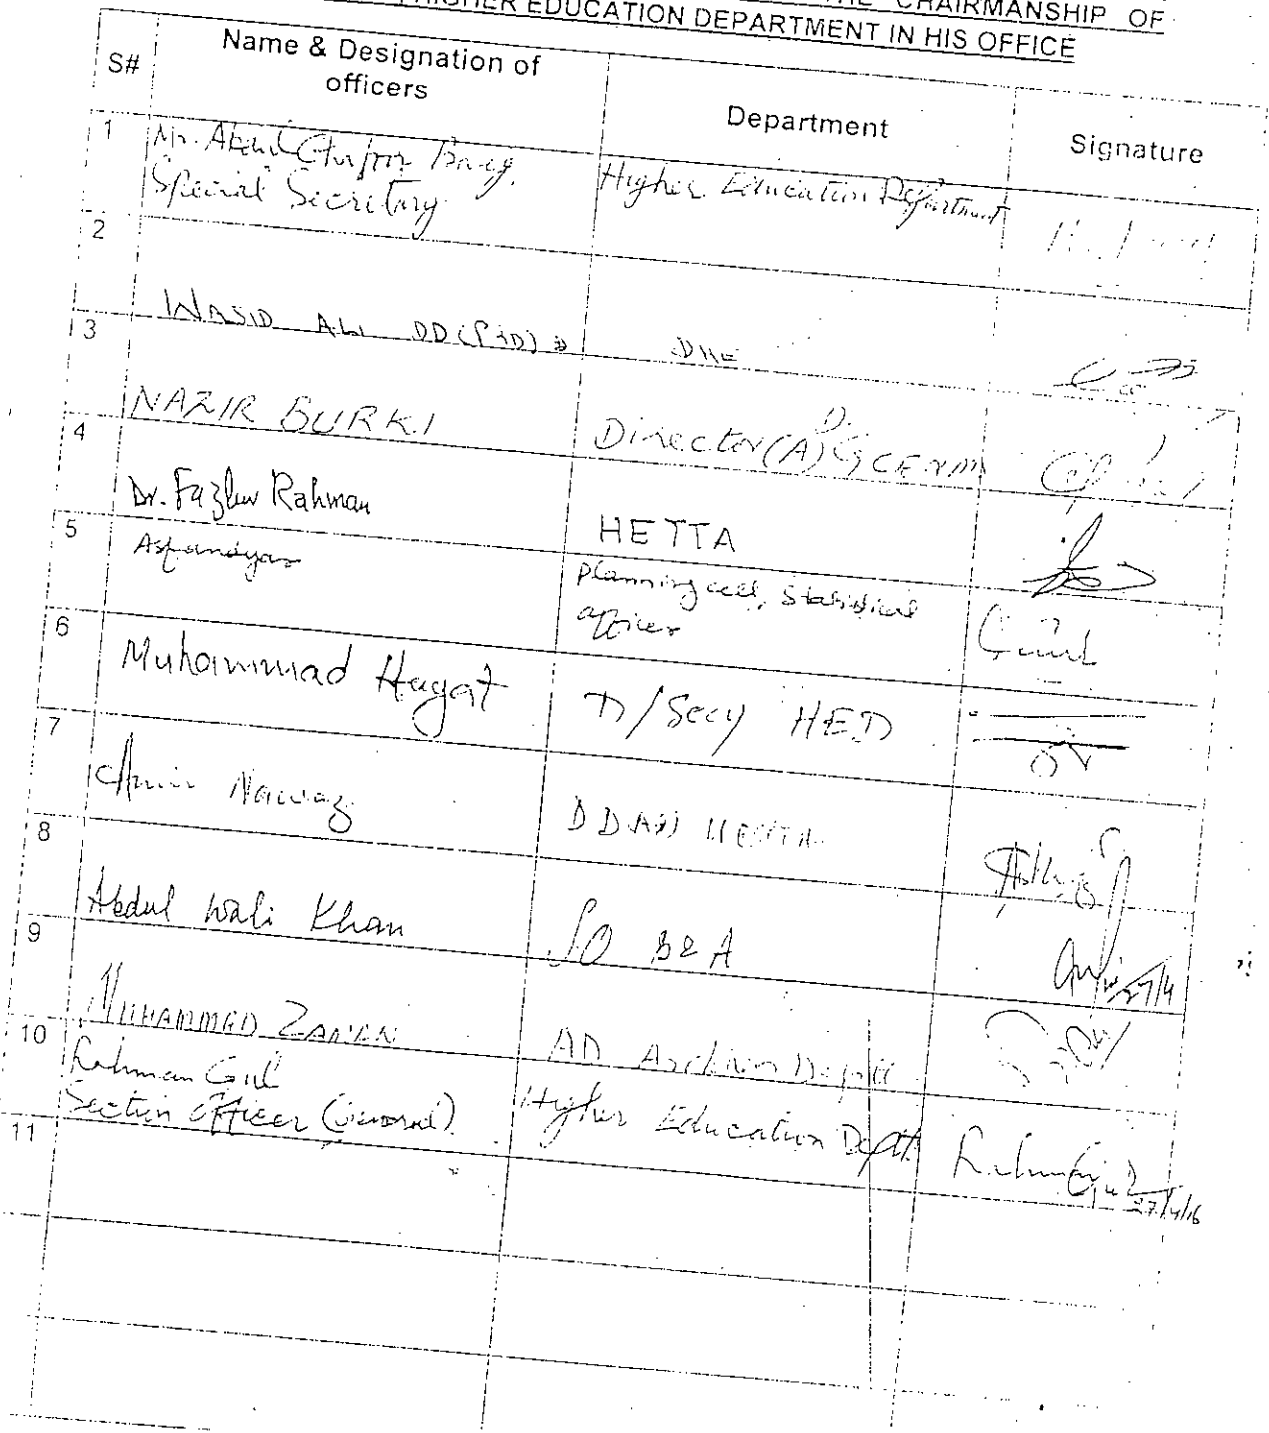 THE CHAIRMANSHIP OF
HIGHER EDUCATION DEPARTMENT IN HIS OFFICE
S# Name & Designation of officers Department Signature
1 Mr. Abdul Special Secretary Higher Education Department
2 WASID ALI DD(P&D) DHE
3 NAZIR BURKI Director(A)
4 Dr. Fazlur Rahman HETTA
5 Asfandyar Planning cell, Statistical officer
6 Muhammad Hayat D/Secy HED
7 Amir Nawaz HETTA
8 Abdul Wali Khan SO B&A 27/4
9 MUHAMMED ZAMAN AD Archives Deptt
10 Rahman Gul
Section Officer (General) Higher Education Deptt. Rahman Gul 27/4/16
11